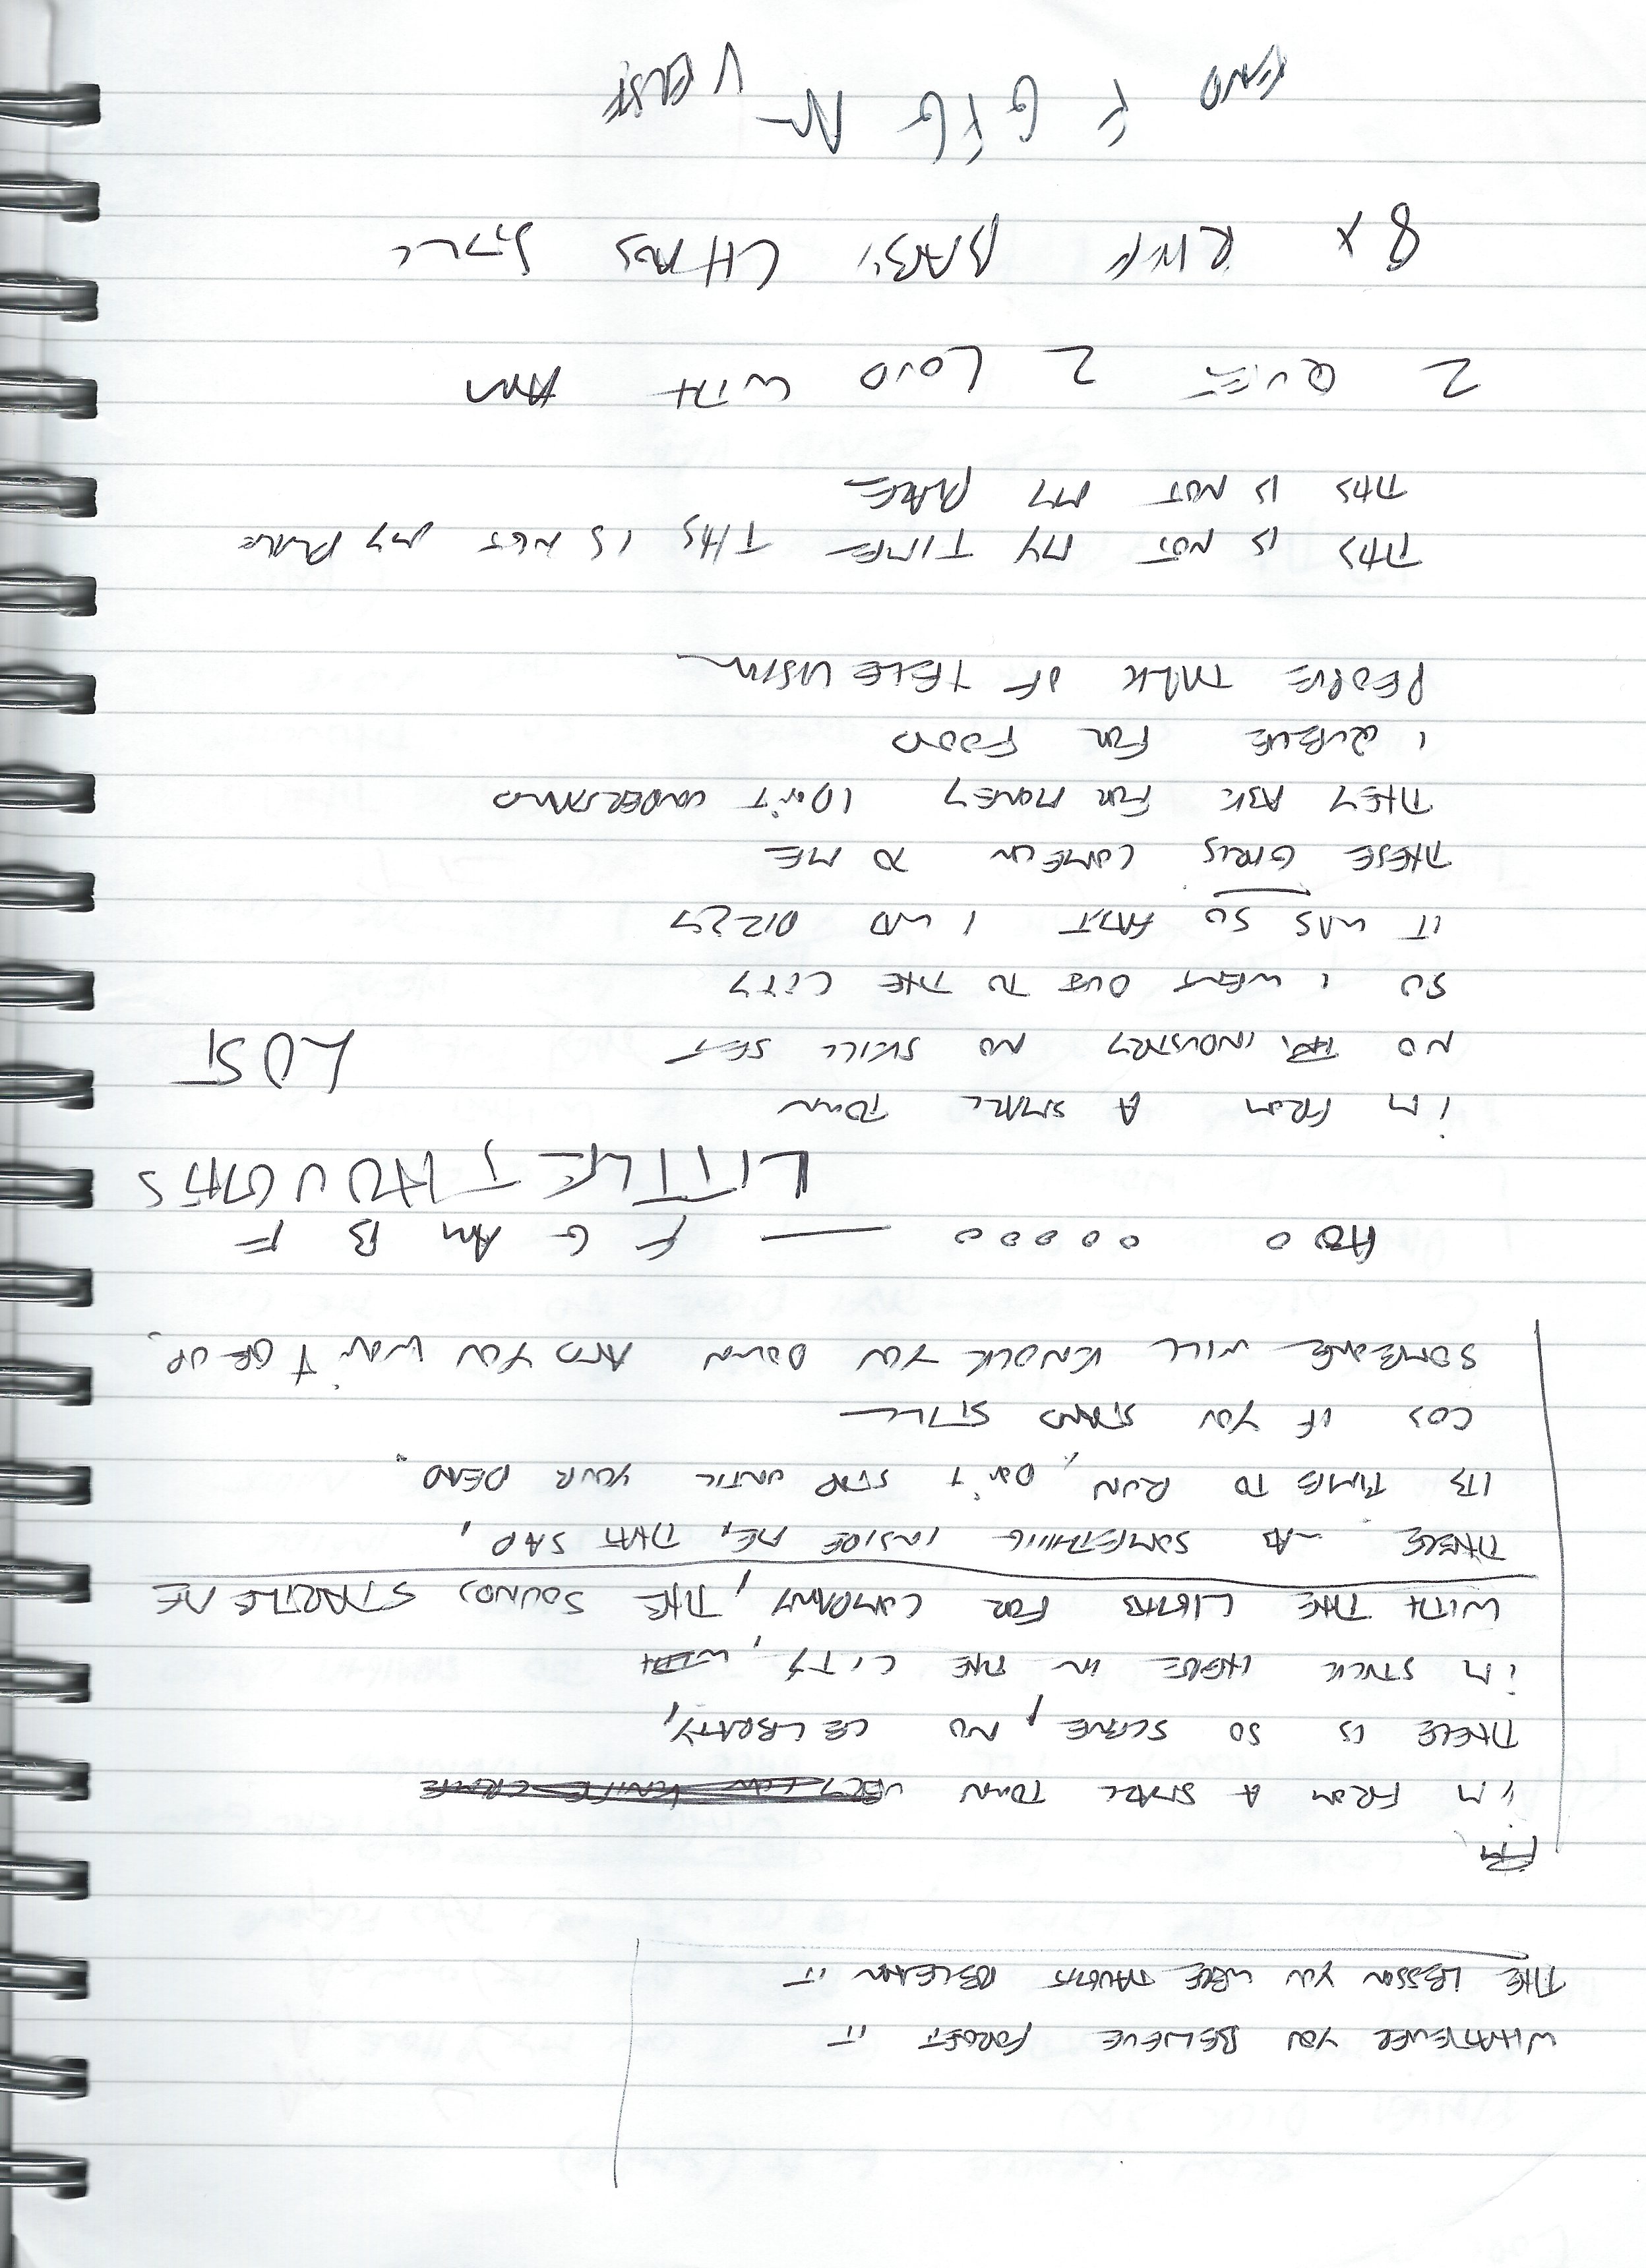 WHATEVER YOU BELIEVE FORGET IT
THE LESSON YOU WERE TAUGHT IT
I'M FROM A SMALL TOWN
THERE IS SO SCENE, NO CELEBRATY,
I'M STUCK HERE IN THE CITY, WITH
WITH THE LIGHTS FOR COMPANY, THE SOUNDS STARTLE ME
THERE SOMETHING INSIDE ME, THAT SAD,
ITS TIME TO RUN, DON'T STOP UNTIL YOUR DEAD.
COS IF YOU STAND STILL
SOMEONE WILL KNOCK YOU DOWN AND YOU WON'T GET UP.
ADD O O O O O O — F G AM B F
LITTLE THOUGHTS
I'M FROM A SMALL TOWN
NO INDUSTRY NO SKILL SET
LOST
SO I WENT OUT TO THE CITY
IT WAS SO FAST I WO DIZZY
THESE GIRLS COME UN TO ME
THEY ASK FOR MONEY I DON'T UNDERSTAND
I QUEUE FOR FOOD
PEOPLE TALK OF TELEVISION
THIS IS NOT MY TIME THIS IS NOT MY PLACE
THIS IS NOT MY PLACE
2 QUIET 2 LOUD WITH AM
8X RIFF BABY CHAOS STYLE
END F G F G AM VERSE